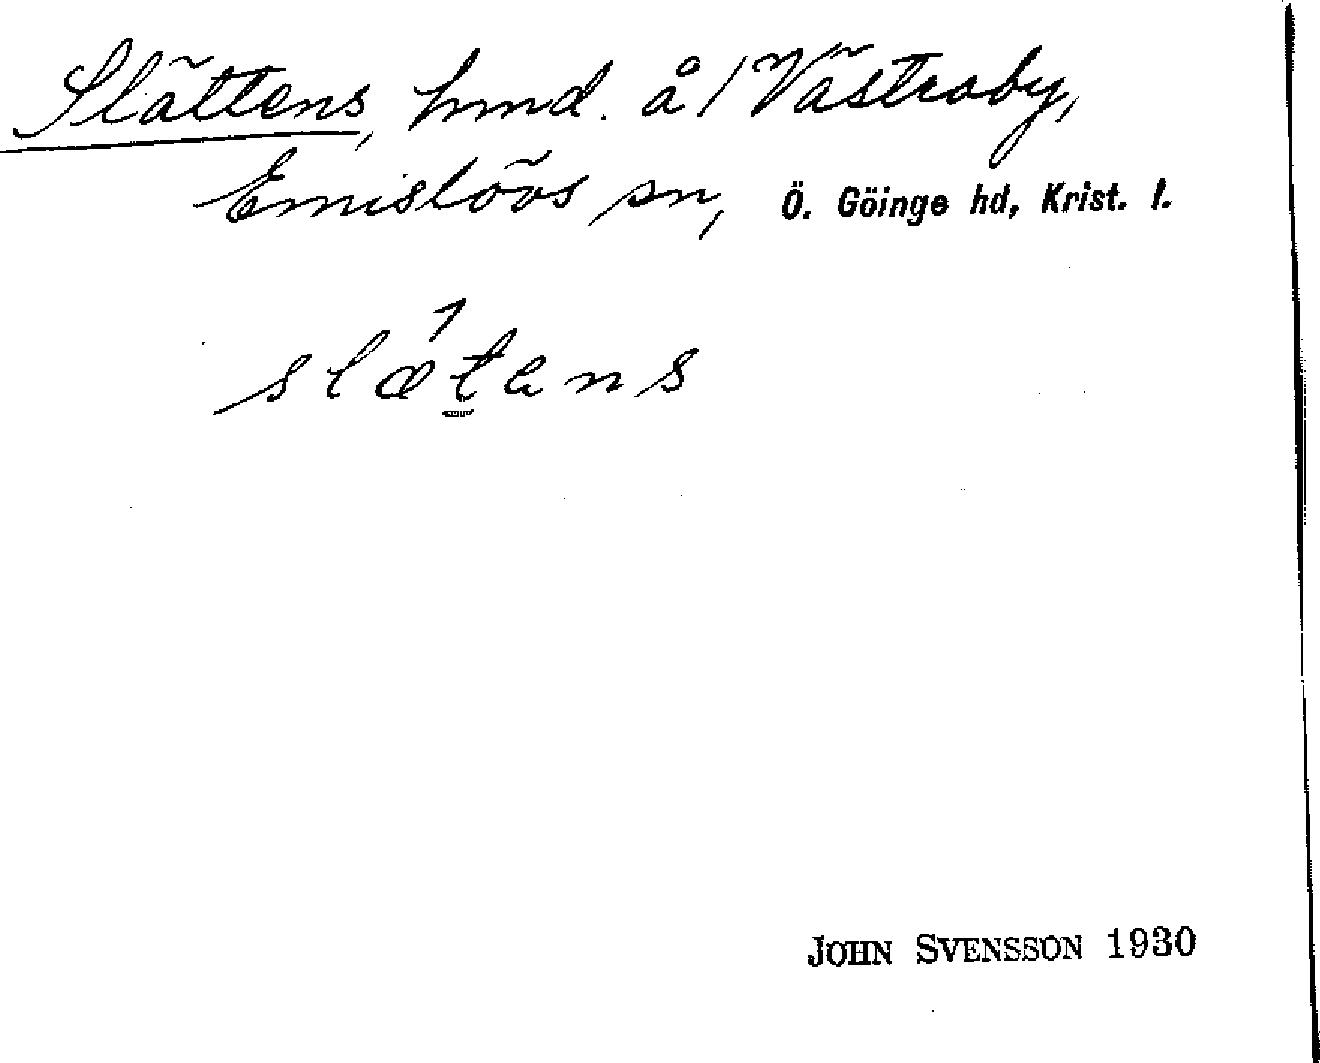 Slättens, hmd. å 1 Västraby,
Emislövs sn, Ö. Göinge hd, Krist. l.
slætens
JOHN SVENSSON 1930